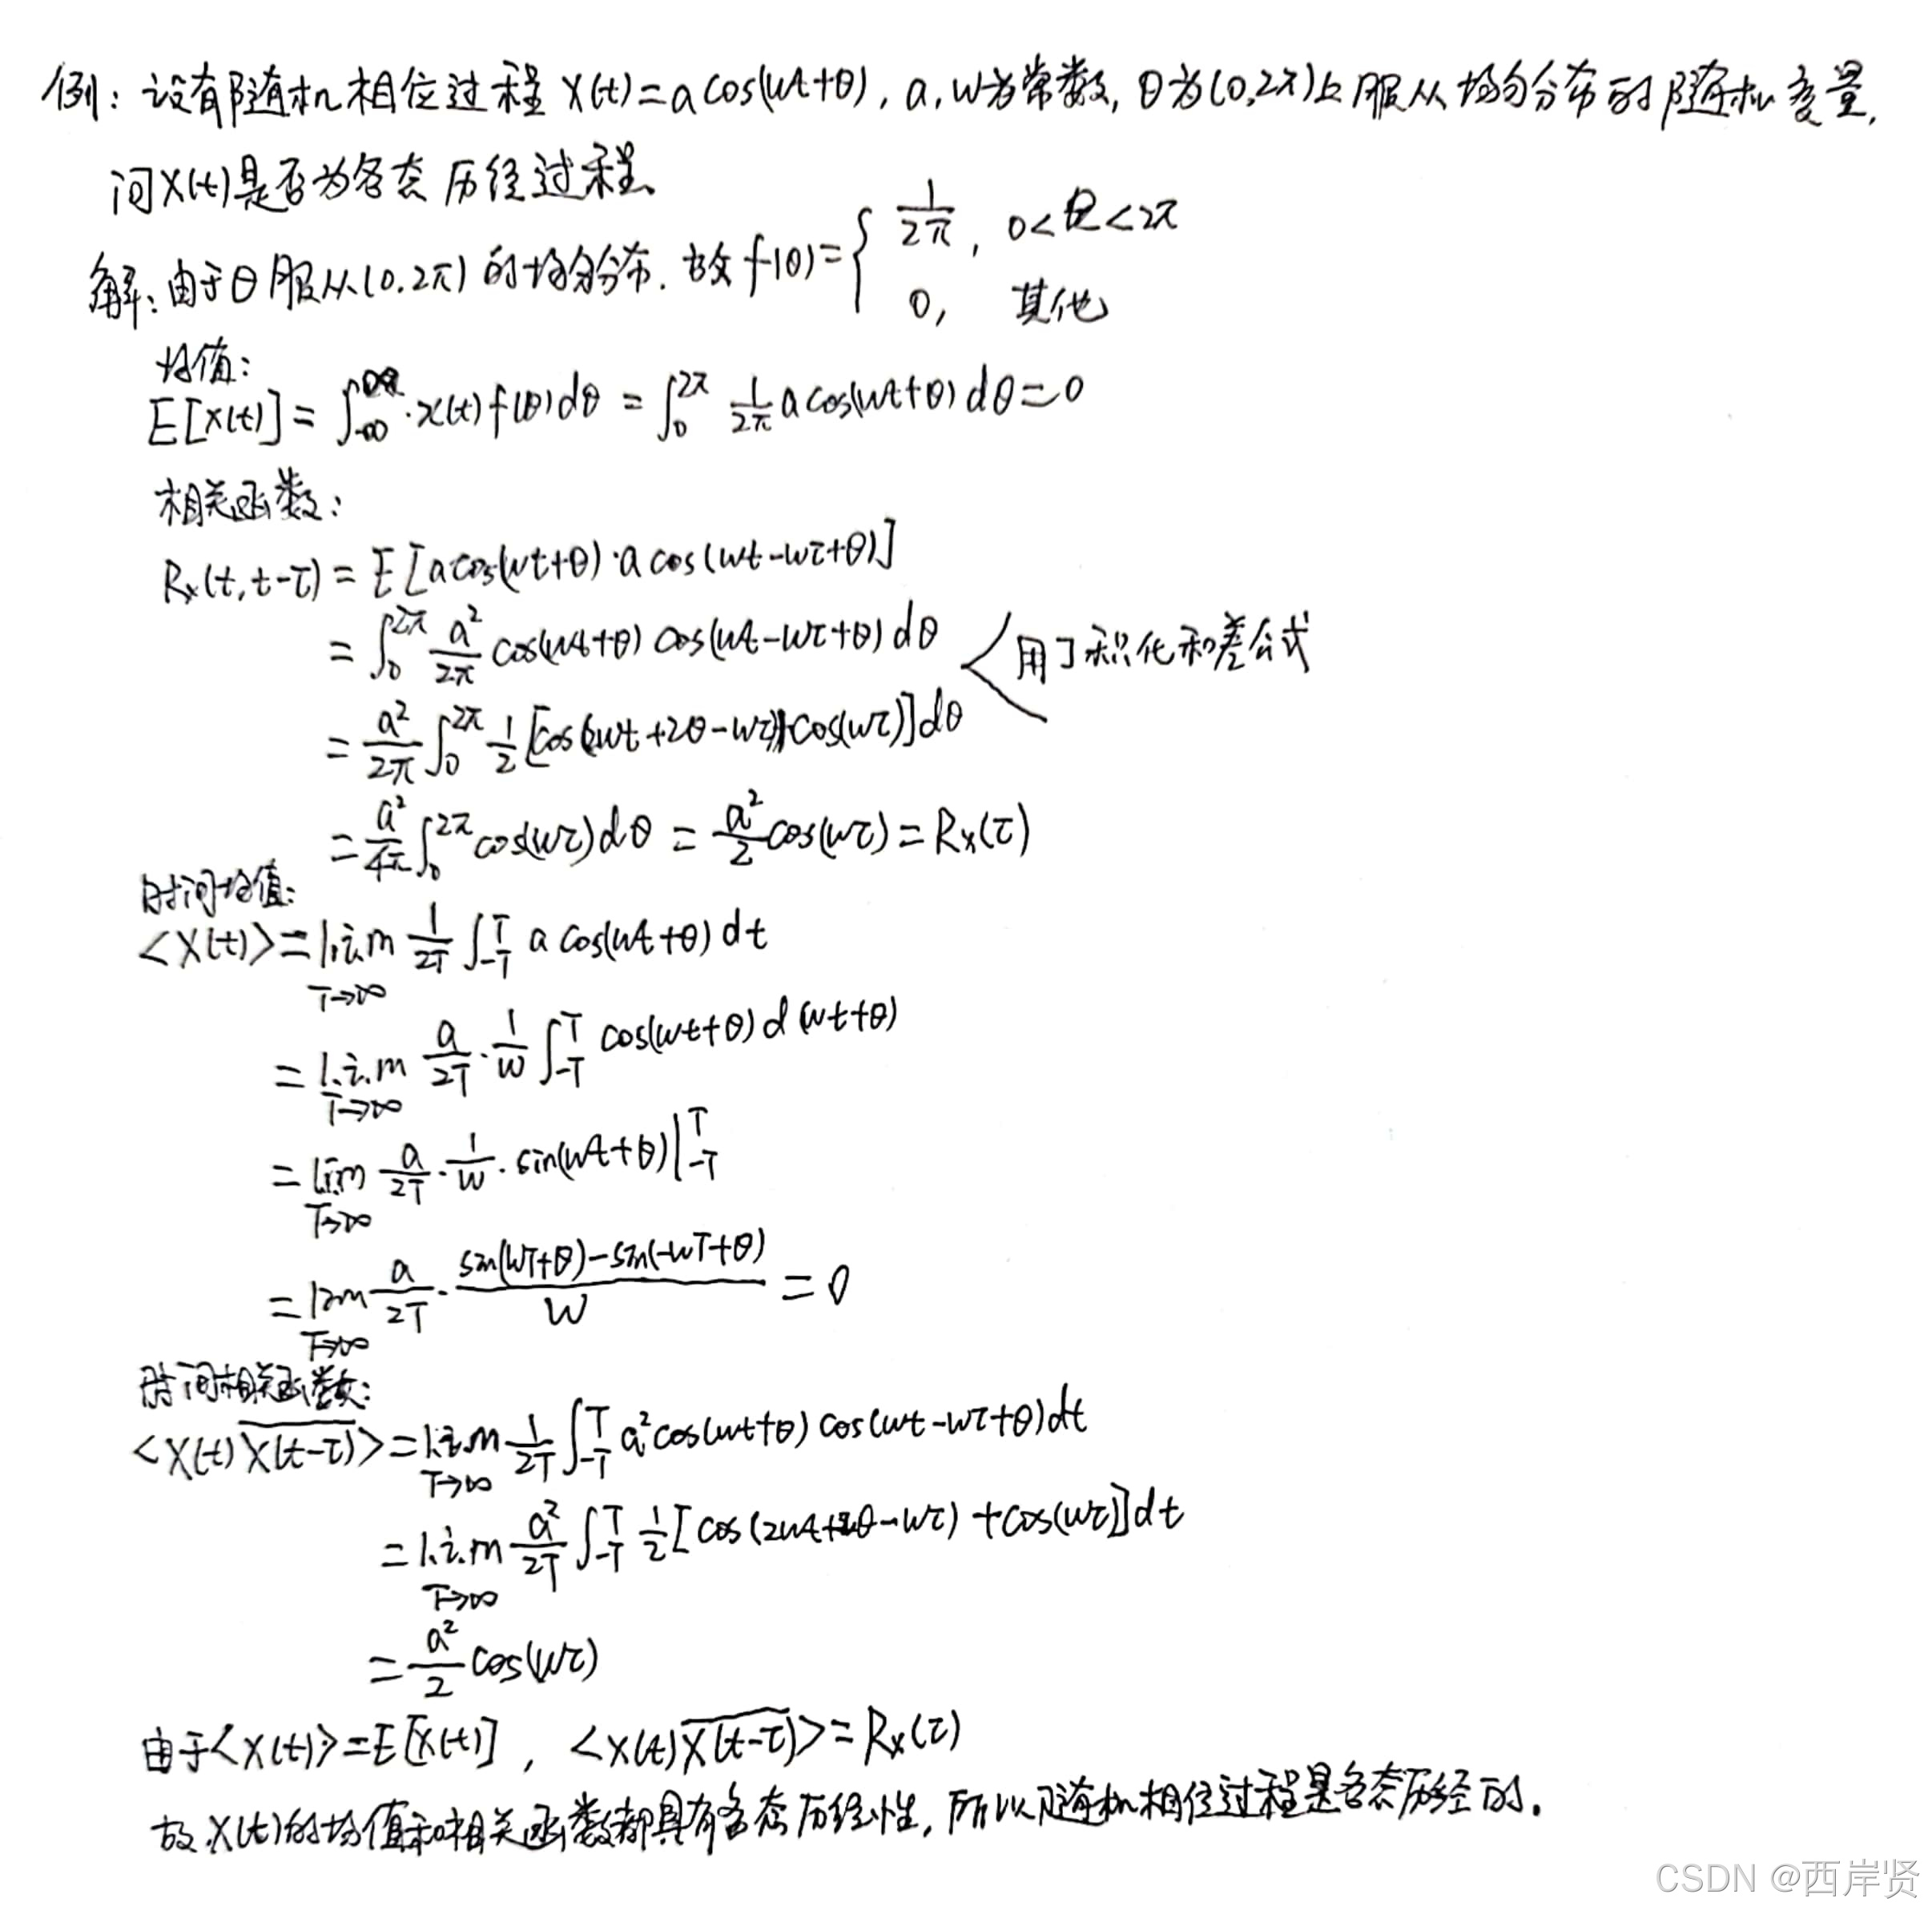 例：设有随机相位过程 X(t)=a cos(wt+θ)，a，w为常数，θ为(0,2π)上服从均匀分布的随机变量，
问X(t)是否为各态历经过程。
解：由于θ服从(0,2π)的均匀分布，故 f(θ)={ 1/2π，0<θ<2π
0，其他
均值：
E[X(t)] = ∫_{-∞}^{∞} x(t)f(θ)dθ = ∫_0^{2π} 1/2π a cos(wt+θ)dθ=0
相关函数：
Rx(t,t-τ) = E[a cos(wt+θ)·a cos(wt-wτ+θ)]
= ∫_0^{2π} a²/2π cos(wt+θ) cos(wt-wτ+θ)dθ 用了积化和差公式
= a²/2π ∫_0^{2π} 1/2 [cos(2wt+2θ-wτ)+cos(wτ)]dθ
= a²/4π ∫_0^{2π} cos(wτ)dθ = a²/2 cos(wτ) = Rx(τ)
时间均值：
<X(t)> = l.i.m_{T→∞} 1/2T ∫_{-T}^{T} a cos(wt+θ)dt
= l.i.m_{T→∞} a/2T · 1/w ∫_{-T}^{T} cos(wt+θ)d(wt+θ)
= l.i.m_{T→∞} a/2T · 1/w · sin(wt+θ)|_{-T}^{T}
= l.i.m_{T→∞} a/2T · (sin(wT+θ)-sin(-wT+θ))/w = 0
时间相关函数：
<X(t)X̅(̅t̅-̅τ̅)̅> = l.i.m_{T→∞} 1/2T ∫_{-T}^{T} a²cos(wt+θ) cos(wt-wτ+θ)dt
= l.i.m_{T→∞} a²/2T ∫_{-T}^{T} 1/2 [cos(2wt+2θ-wτ)+cos(wτ)]dt
= a²/2 cos(wτ)
由于<X(t)>=E[X(t)]，<X(t)X̅(̅t̅-̅τ̅)̅>=Rx(τ)
故X(t)的均值和相关函数都具有各态历经性，所以随机相位过程是各态历经的.
CSDN @西岸贤